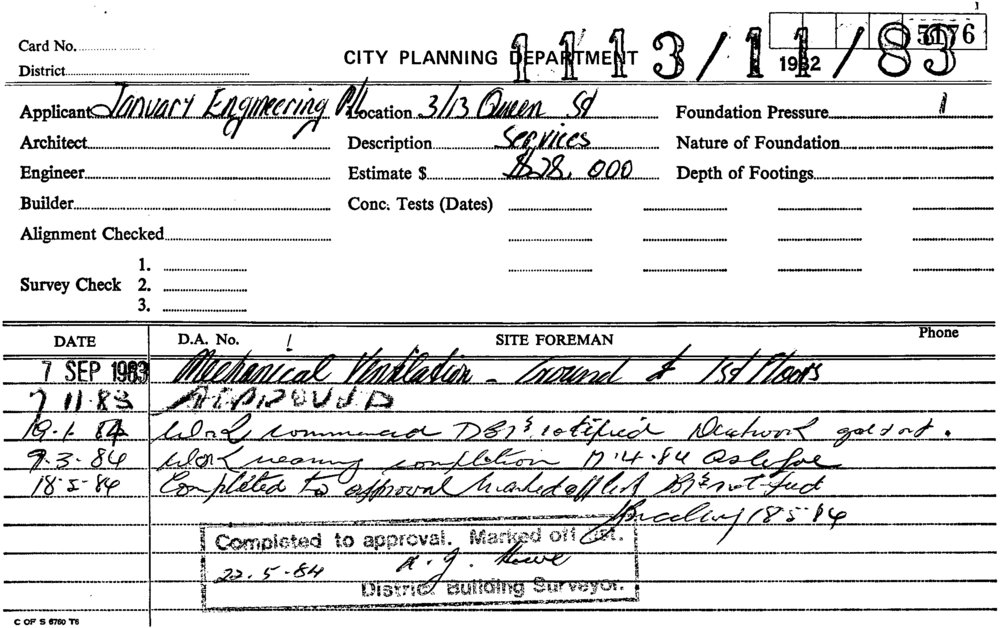 1
Card No.
CITY PLANNING DEPARTMENT
1113/11/83
1982
5176
District
Applicant January Engineering P/L Location 3/13 Queen St Foundation Pressure
Architect Description Services Nature of Foundation
Engineer Estimate $ $28,000 Depth of Footings
Builder Conc. Tests (Dates)
Alignment Checked
1.
Survey Check 2.
3.
DATE D.A. No. SITE FOREMAN Phone
7 SEP 1983 Mechanical Ventilation - Ground & 1st Floors
7 11.83 APPROVED
19-1-84 Work commenced DBI's notified Ductwork
9-3-84 Work nearing completion 17.4.84
18-5-84 Completed to approval Marked off list notified
18 5 84
Completed to approval. Marked off list.
22-5-84 Howe
District Building Surveyor.
C OF S 6760 T6